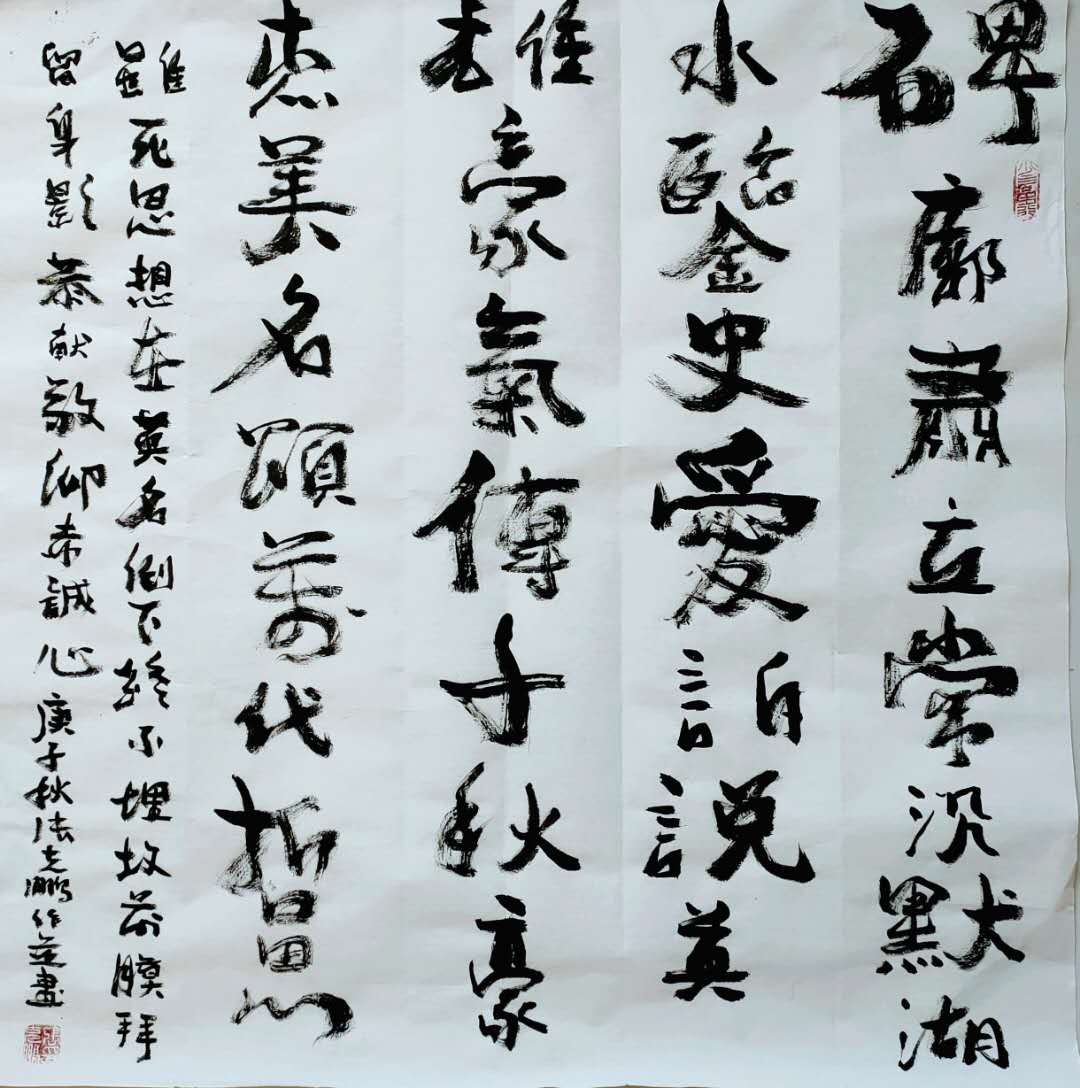 碑廓肅立常沉默湖
水鑒史愛訴說英
雄豪氣傳千秋豪
杰美名頌萬代哲思
雖死思想在英名倒下終不埋坟前膜拜
留身影恭献敬仰誠心庚子秋张克鵬作並書